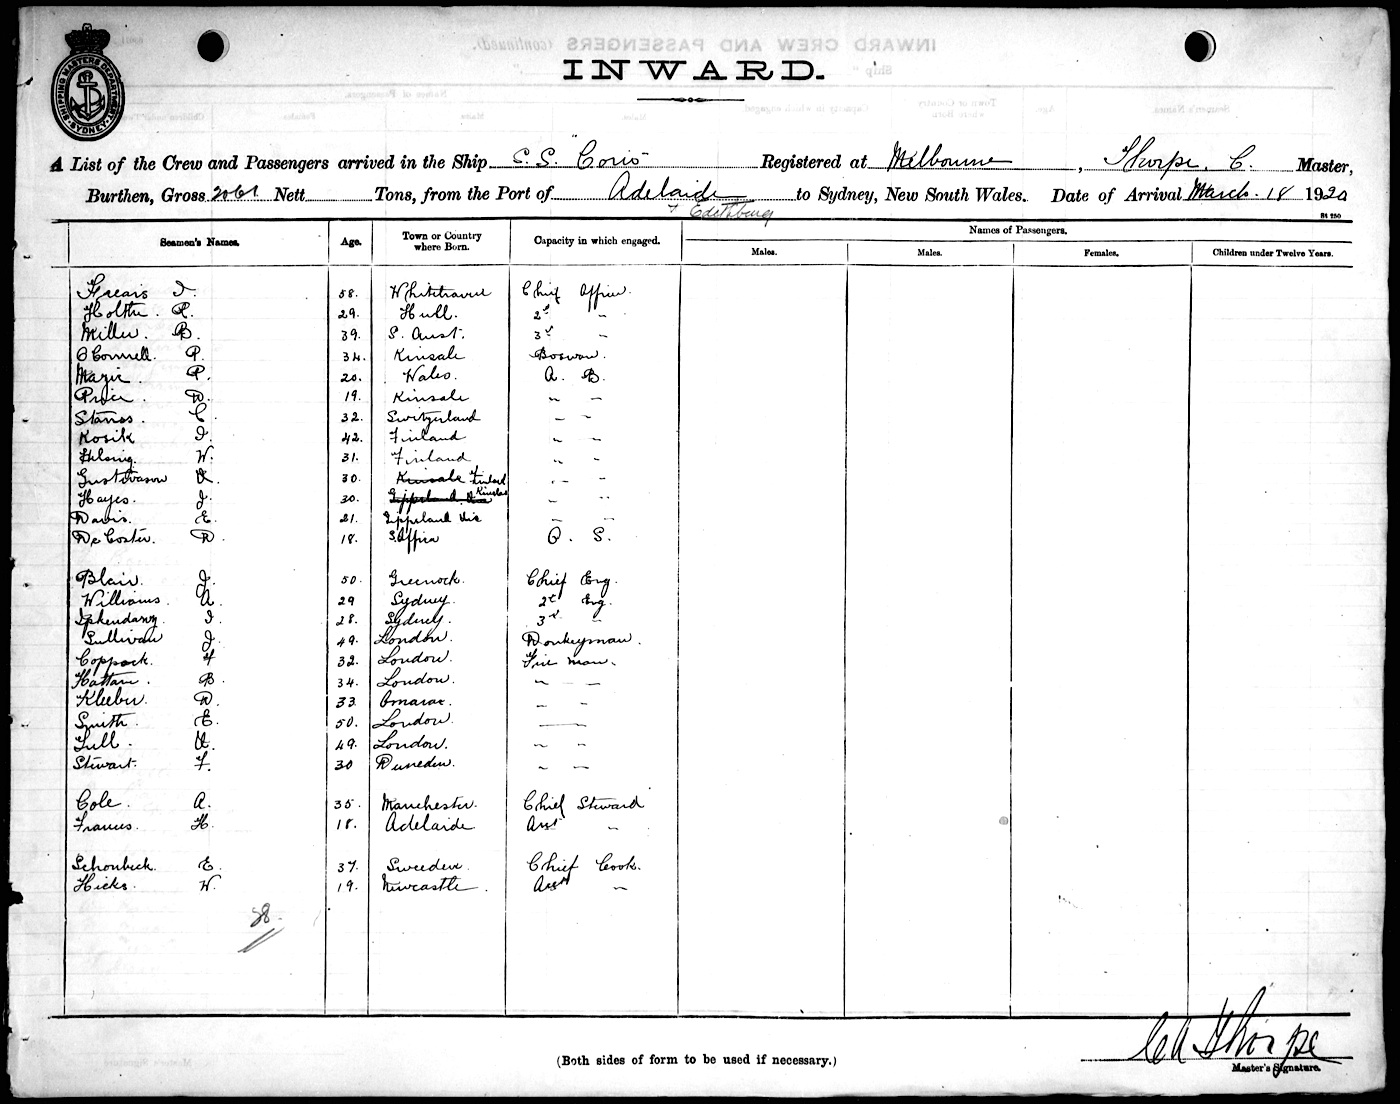 INWARD CREW AND PASSENGERS (continued).
INWARD.
SHIPPING MASTERS DEPARTMENT SYDNEY
A List of the Crew and Passengers arrived in the Ship S.S. "Corio" Registered at Melbourne, Thorpe, C. Master,
Burthen, Gross Nett Tons, from the Port of Adelaide to Sydney, New South Wales. Date of Arrival March 18 1920
+ Edithburg
St 250
Seamen's Names. Age. Town or Country where Born. Capacity in which engaged. Names of Passengers.
Males. Males. Females. Children under Twelve Years.
J. 58. Chief Officer.
R. 29. Hull. 2d "
Miller. B. 39. S. Aust. 3d "
O'Connell. P. 34. Kinsale Boswan.
P. 20. Wales. A. B.
Price. D. 19. Kinsale " "
C. 32. Switzerland " "
Kosik J. 42. Finland " "
W. 31. Finland " "
Gustavason A. 30. Kinsale Finland " "
Hayes. J. 30. Gippsland Vic Kinsale " "
Davis. E. 21. Gippsland Vic " "
De Coster. D. 18. S. Africa O. S.
Blair. J. 50. Greenock. Chief Eng.
Williams. A. 29 Sydney. 2d Eng.
J. 28. Sydney. 3d "
Sullivan J. 49. London. Donkeyman.
Coppack. F 32. London. Fire man.
Hattam. B. 34. London. " "
Kleeber D. 33. " "
Smith. E. 50. London. " "
A. 49. London. " "
Stewart. F. 30 Dunedin. " "
Cole. A. 35. Manchester. Chief Steward
Francis. H. 18. Adelaide Asst "
Schonbeck. E. 37. Sweeden. Chief Cook.
Hicks. W. 19. Newcastle. Asst "
28.
C A Thorpe
(Both sides of form to be used if necessary.)
Master's Signature.